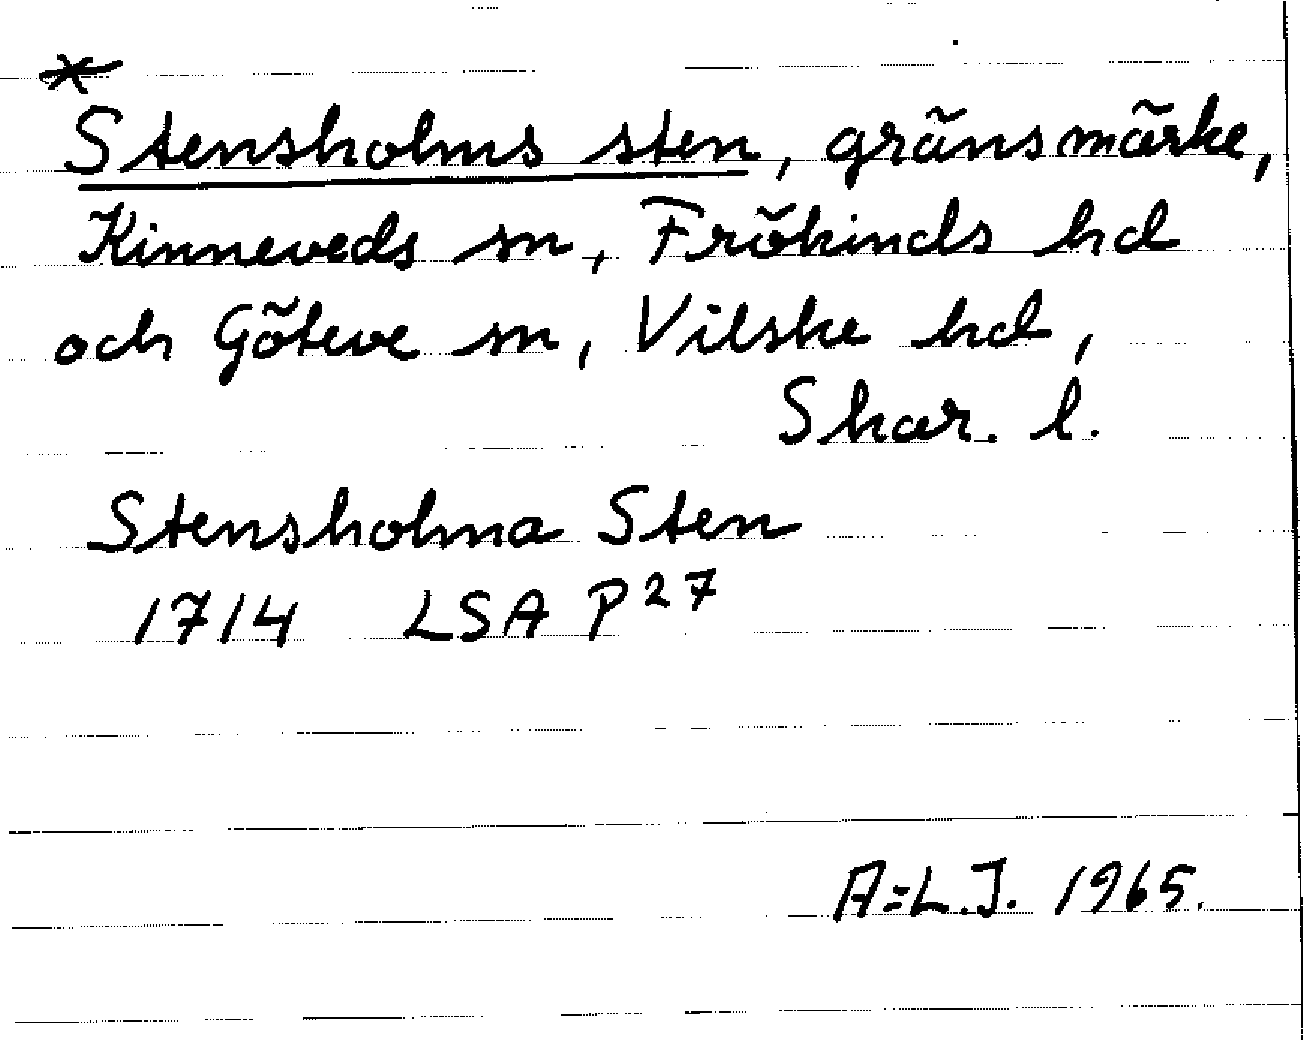 *
Stensholms sten, gränsmärke,
Kinneveds sn, Frökinds hd
och Göteve sn, Vilske hd,
Skar. l.
Stensholma Sten
1714 LSA P27
A=L.J. 1965.